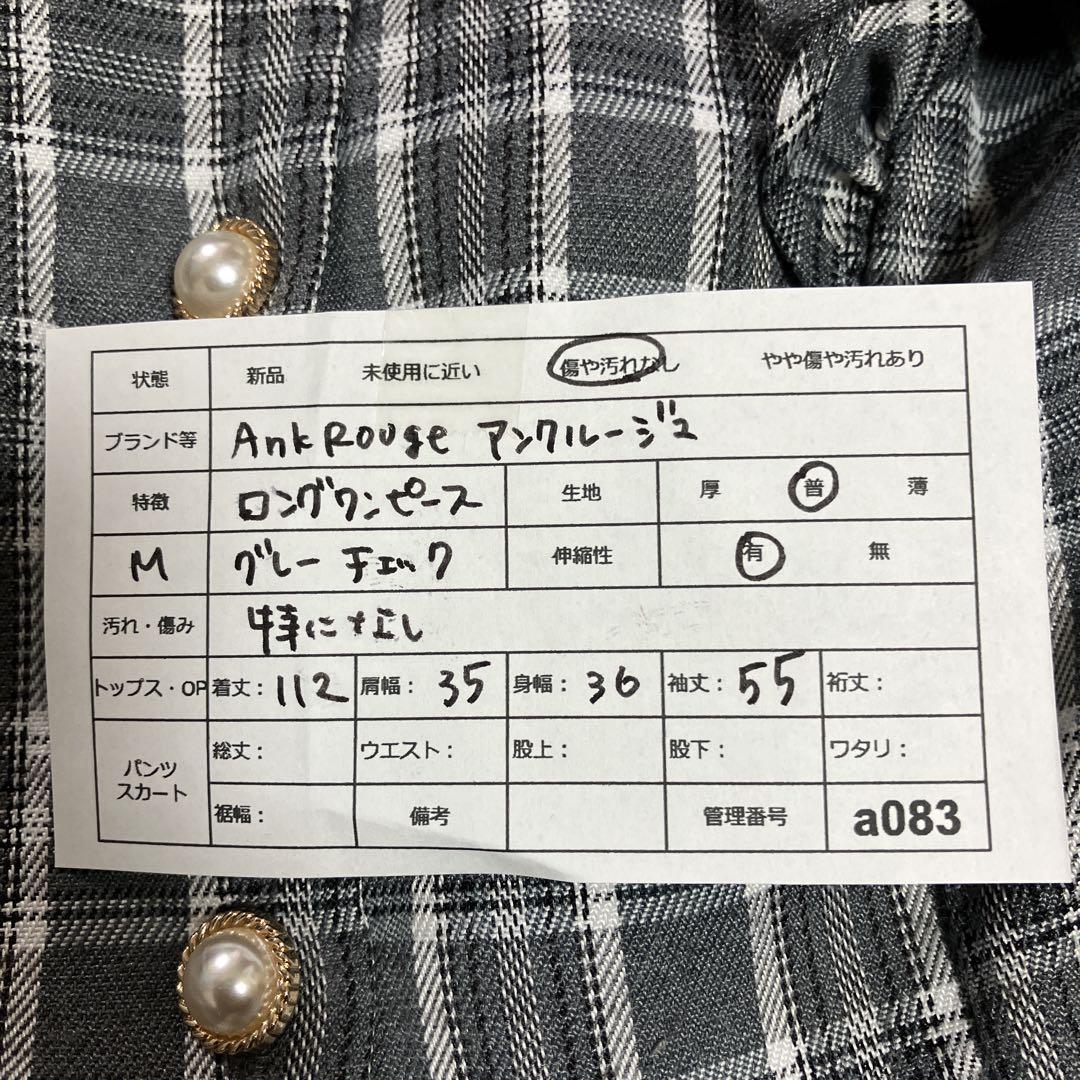 状態 新品 未使用に近い 傷や汚れなし やや傷や汚れあり
ブランド等 Ank Rouge アンクルージュ
特徴 ロングワンピース 生地 厚 普 薄
M グレーチェック 伸縮性 有 無
汚れ・傷み 特になし
トップス・OP 着丈：112 肩幅：35 身幅：36 袖丈：55 裄丈：
パンツ スカート 総丈： ウエスト： 股上： 股下： ワタリ：
裾幅： 備考 管理番号 a083